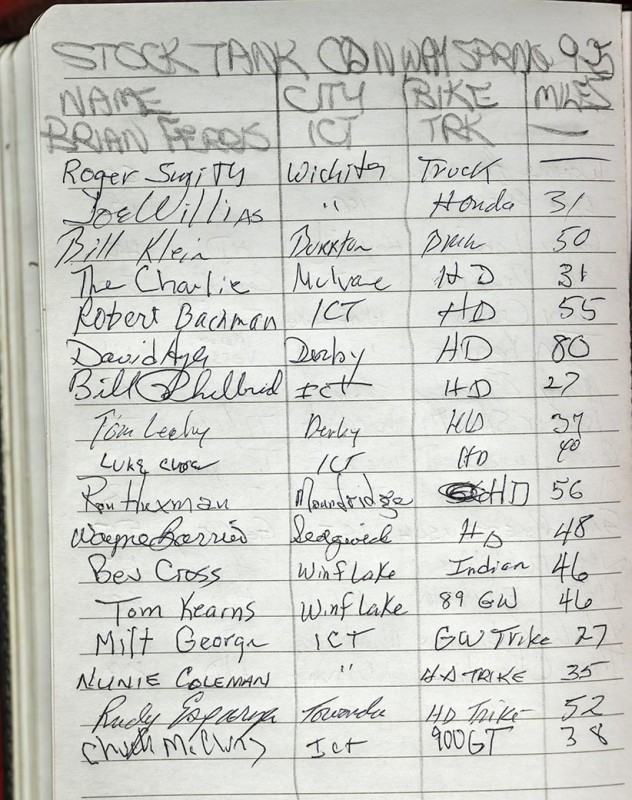 STOCK TANK CONWAY SPRING 9 25
NAME CITY BIKE MILES
BRIAN ICT TRK —
Roger Wichita Truck —
Joe Willias " Honda 31
Bill Klein 50
The Charlie Mulvane HD 31
Robert Bachman ICT HD 55
David Derby HD 80
Bill ICT HD 27
Tom Derby HD 37
Luke ICT HD 40
Ron Huxman Moundridge HD 56
Wayne Sedgwick HD 48
Bev Cross Winf Lake Indian 46
Tom Kearns Winf Lake 89 GW 46
Milt George ICT GW Trike 27
NUNIE COLEMAN " HD TRIKE 35
Rudy Esparza Towanda HD Trike 52
Chuck Ict 900GT 38